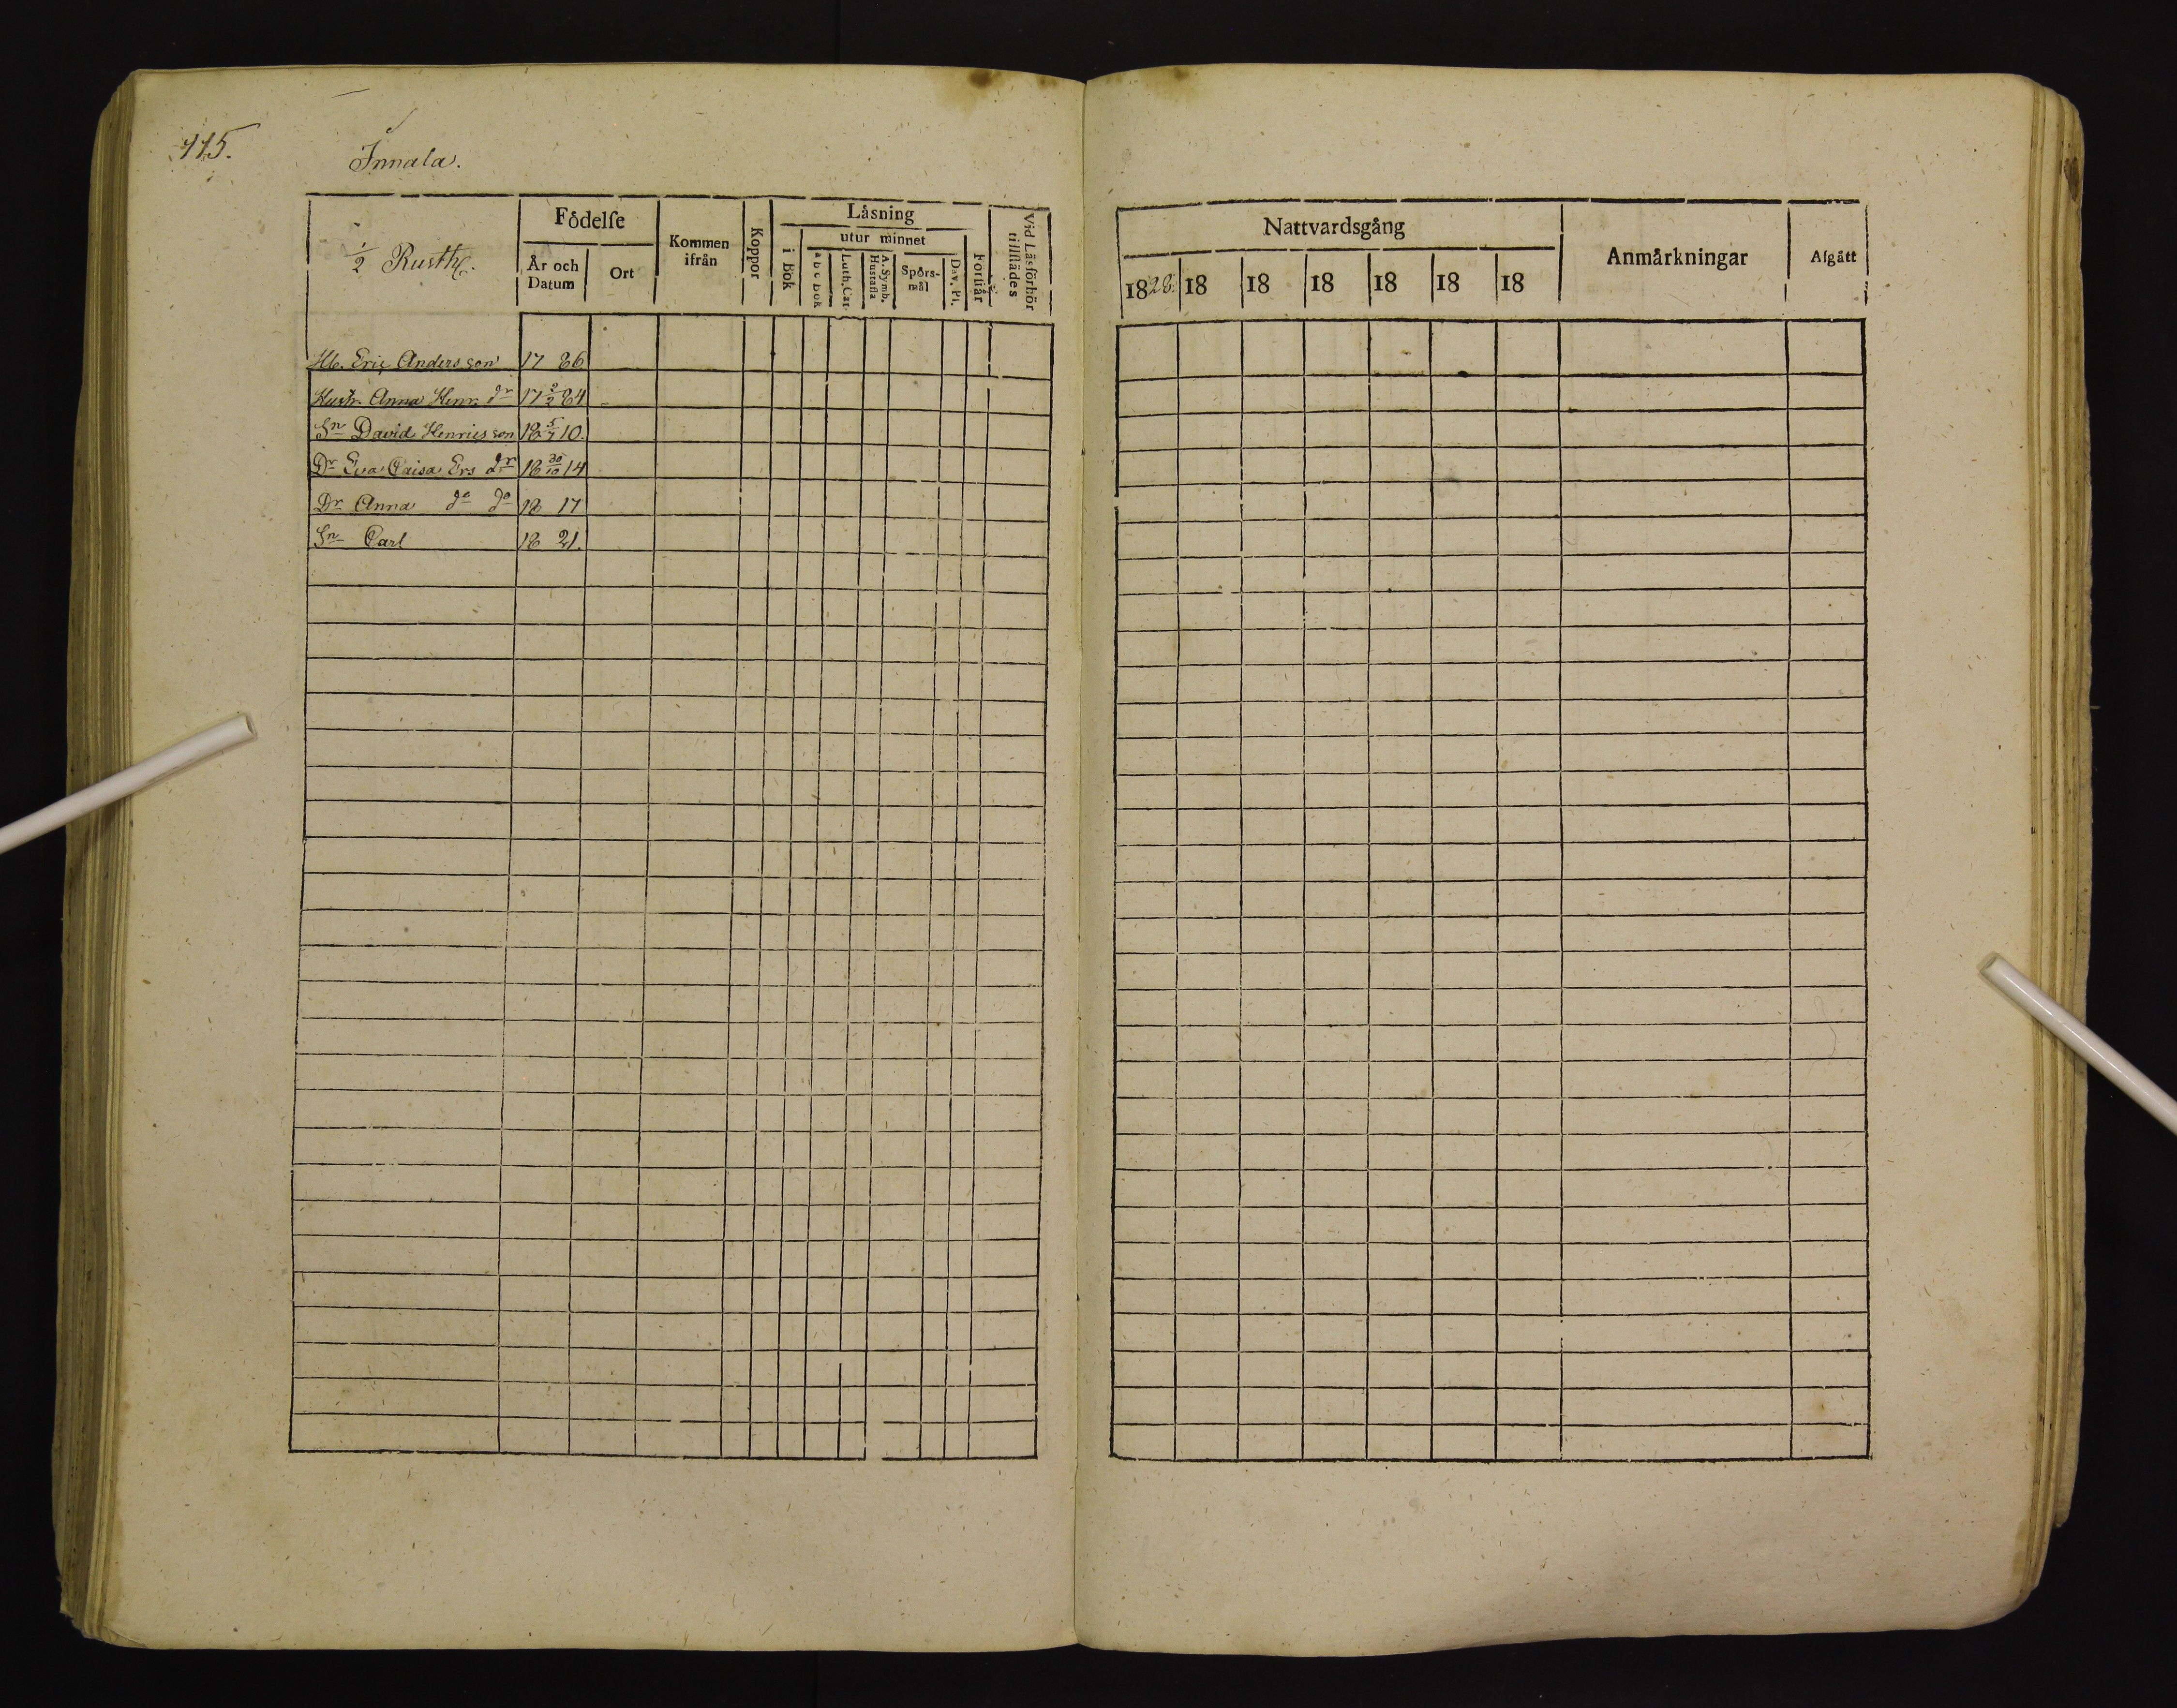 115.
Innala.
½ Rusth.
Födelse
År och Datum
Ort
Kommen ifrån
Koppor
Läsning
i Bok
utur minnet
a b c bok
Luth. Cat.
A. Symb. Hustafla
Spörs-mål
Dav. Ps.
Förstår
Vid Läsförhör tillstädes
Hb. Eric Andersson 17 86
Hustr. Anna Henr. dr 17 2/2 84
Sn David Henricsson 18 5/7 10.
Dr Eva Caisa Ers dr 18 30/10 14
Dr Anna do do 18 17
Sn Carl 18 21.
Nattvardsgång
1828. 18 18 18 18 18 18
Anmärkningar
Afgått